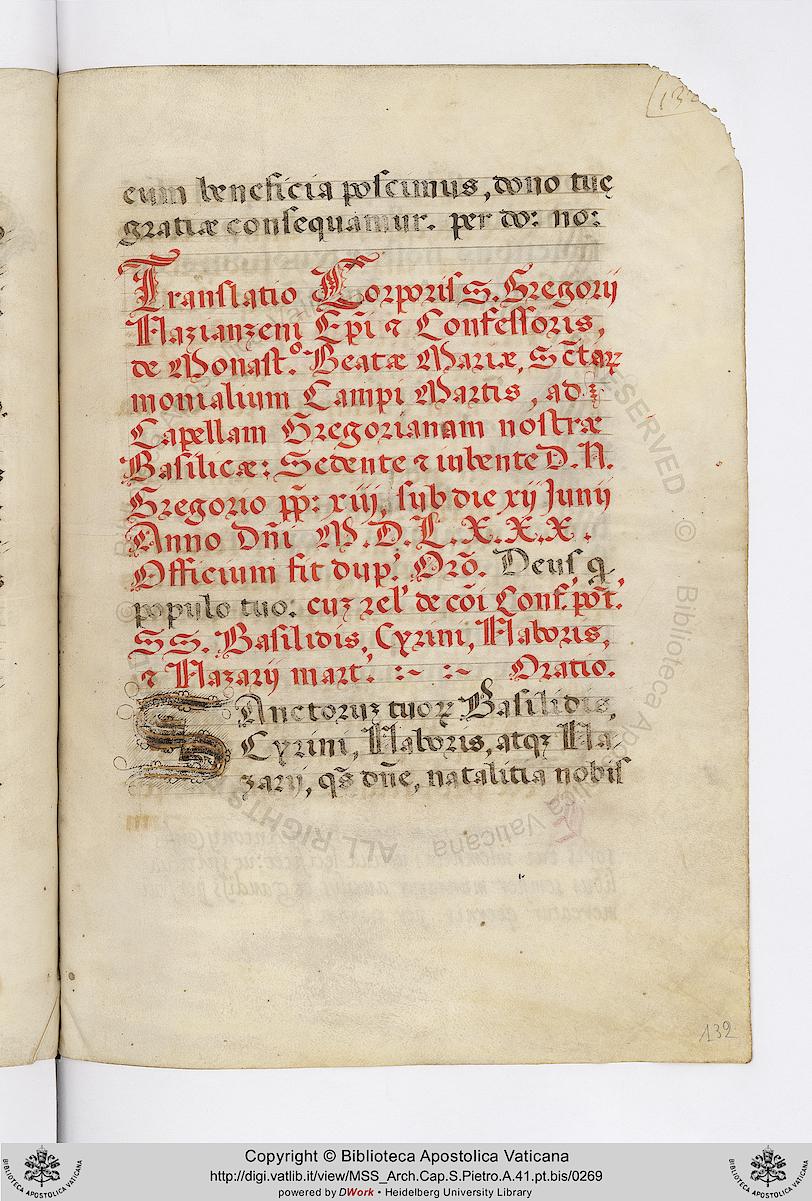 eum beneficia poscimus, dono tuę
gratiæ consequamur. per do: no:
Translatio Corporis S. Gregorij
Nazianzeni Ep̃i ⁊ Confessoris,
de Monast.º Beatæ Mariæ, Sc̃taꝝ
monialium Campi Martis, ad
Capellam Gregorianam nostræ
Basilicæ: Sedente ⁊ iubente D. N.
Gregorio pp̃: xiij, sub die xij Junij
Anno Dñi M.D.L.X.X.X.
Officium fit dup. Orõ. Deus, q
populo tuo: cuz rel. de cõi Conf. põt.
SS. Basilidis, Cyrini, Naboris,
⁊ Nazarij mart. :~ :~ Oratio.
SAnctoruz tuoꝝ Basilidis,
Cyrini, Naboris, atqz Na-
zarij, qs̃ dñe, natalitia nobis
139
Copyright © Biblioteca Apostolica Vaticana
http://digi.vatlib.it/view/MSS_Arch.Cap.S.Pietro.A.41.pt.bis/0269
powered by DWork • Heidelberg University Library
BIBLIOTECA APOSTOLICA VATICANA
BIBLIOTECA APOSTOLICA VATICANA